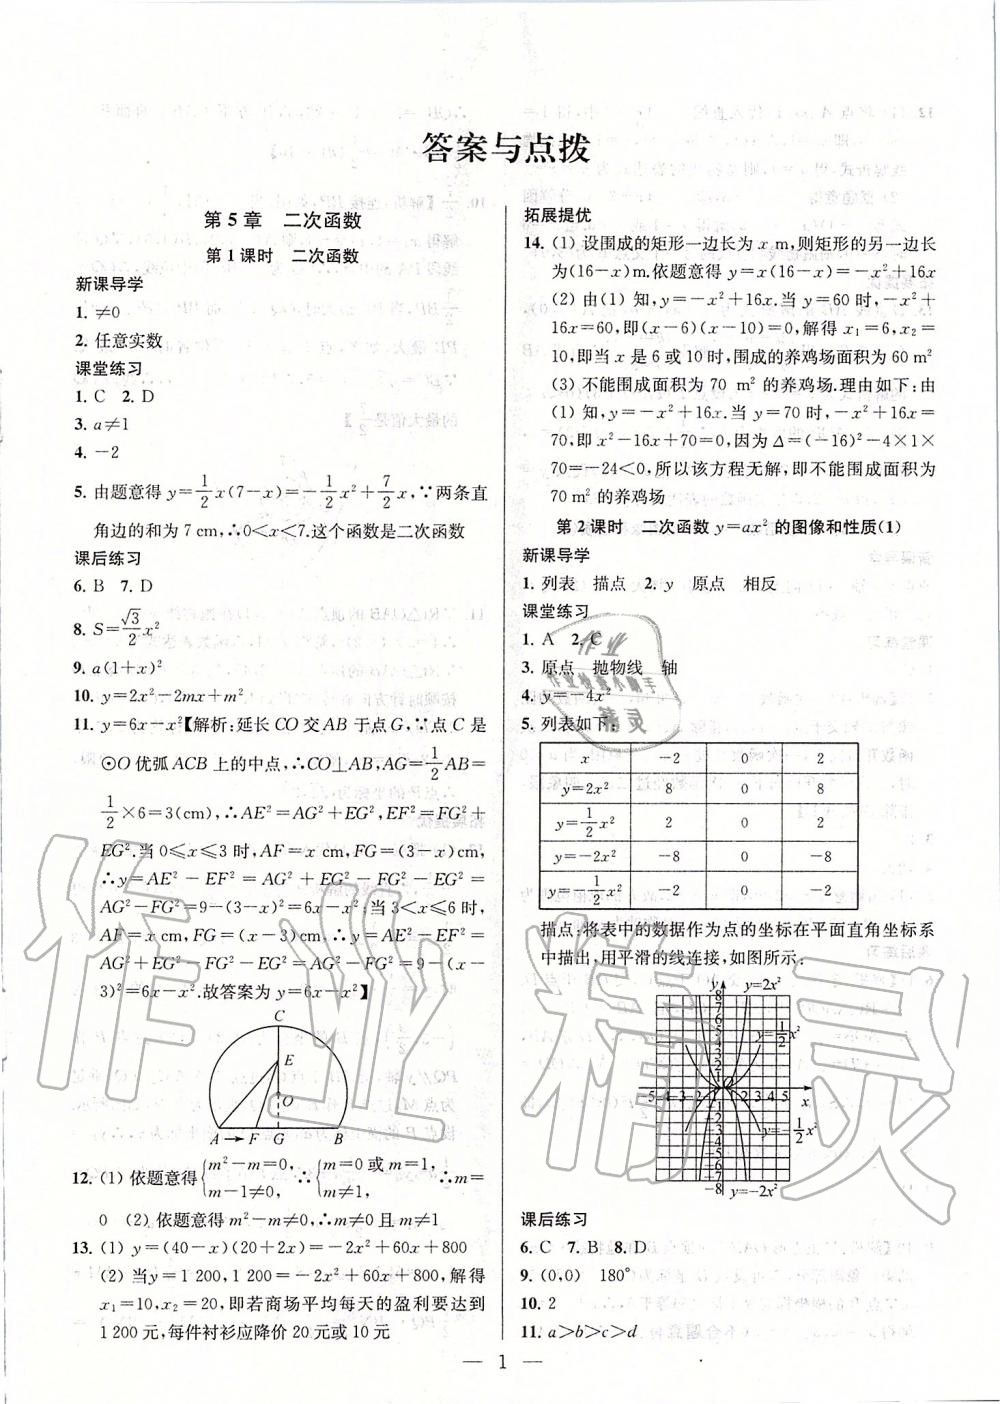 答案与点拨
第5章　二次函数
第1课时　二次函数
新课导学
1. ≠0
2. 任意实数
课堂练习
1. C　2. D
3. a≠1
4. －2
5. 由题意得 y=1/2x(7－x)=－1/2x²+7/2x,∵两条直
角边的和为 7 cm,∴0<x<7.这个函数是二次函数
课后练习
6. B　7. D
8. S=√3/2x²
9. a(1+x)²
10. y=2x²－2mx+m²
11. y=6x－x²【解析:延长 CO 交 AB 于点 G,∵点 C 是
⊙O 优弧 ACB 上的中点,∴CO⊥AB,AG=1/2AB=
1/2×6=3(cm),∴AE²=AG²+EG²,EF²=FG²+
EG².当 0≤x≤3 时,AF=x cm,FG=(3－x)cm,
∴y=AE²－EF²=AG²+EG²－FG²－EG²=
AG²－FG²=9－(3－x)²=6x－x²;当 3<x≤6 时,
AF=x cm,FG=(x－3)cm,∴y=AE²－EF²=
AG²+EG²－FG²－EG²=AG²－FG²=9－(x－
3)²=6x－x².故答案为 y=6x－x²】
C
E
O
A→F G B
12. (1) 依题意得{m²－m=0, m－1≠0,∴{m=0 或 m=1, m≠1,∴m=
0　(2) 依题意得 m²－m≠0,∴m≠0 且 m≠1
13. (1) y=(40－x)(20+2x)=－2x²+60x+800
(2) 当 y=1 200,1 200=－2x²+60x+800,解得
x₁=10,x₂=20,即若商场平均每天的盈利要达到
1 200 元,每件衬衫应降价 20 元或 10 元
拓展提优
14. (1) 设围成的矩形一边长为 x m,则矩形的另一边长
为(16－x)m.依题意得 y=x(16－x)=－x²+16x
(2) 由(1) 知,y=－x²+16x.当 y=60 时,－x²+
16x=60,即(x－6)(x－10)=0,解得 x₁=6,x₂=
10,即当 x 是 6 或 10 时,围成的养鸡场面积为 60 m²
(3) 不能围成面积为 70 m² 的养鸡场.理由如下:由
(1) 知,y=－x²+16x.当 y=70 时,－x²+16x=
70,即 x²－16x+70=0,因为 Δ=(－16)²－4×1×
70=－24<0,所以该方程无解,即不能围成面积为
70 m² 的养鸡场
第2课时　二次函数 y=ax² 的图像和性质(1)
新课导学
1. 列表　描点　2. y　原点　相反
课堂练习
1. A　2. C
3. 原点　抛物线　轴
4. y=－4x²
5. 列表如下:
x －2 0 2
y=2x² 8 0 8
y=1/2x² 2 0 2
y=－2x² －8 0 －8
y=－1/2x² －2 0 －2
描点:将表中的数据作为点的坐标在平面直角坐标系
中描出,用平滑的线连接,如图所示:
y y=2x²
8
7
6
5
4
3
2
1
y=1/2x²
－5－4－3－2－1 O 1 2 3 4 5 x
－1
－2
－3
－4
－5
－6
－7
－8
y=－1/2x²
y=－2x²
课后练习
6. C　7. B　8. D
9. (0,0)　180°
10. 2
11. a>b>c>d
— 1 —
作业
作业检查小助手
精灵
作业精灵